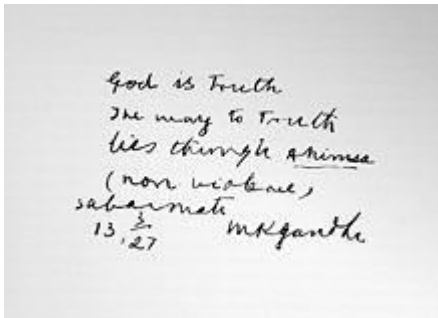 God is Truth
The way to Truth
lies through ahimsa
(non violence)
sabarmati
13.3.27 MKGandhi